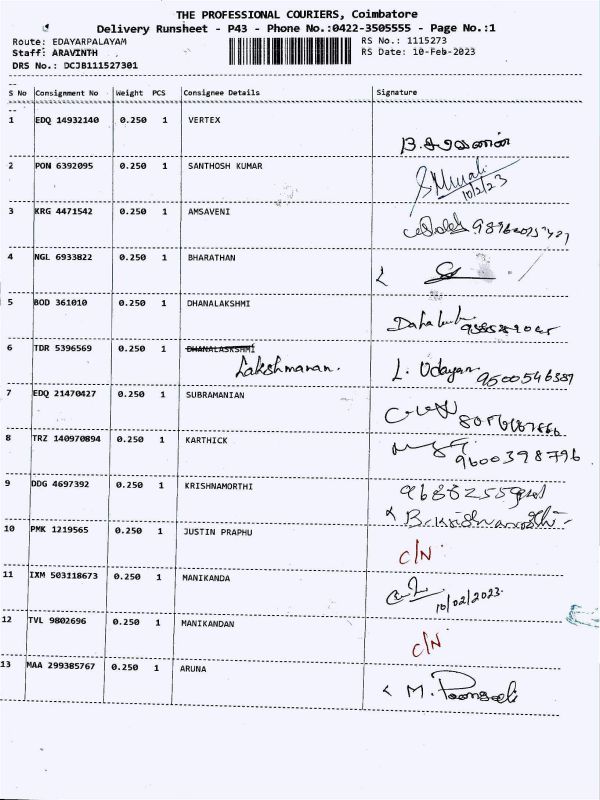 THE PROFESSIONAL COURIERS, Coimbatore
Delivery Runsheet - P43 - Phone No.:0422-3505555 - Page No.:1
Route: EDAYARPALAYAM RS No.: 1115273
Staff: ARAVINTH RS Date: 10-Feb-2023
DRS No.: DCJB111527301
S No Consignment No Weight PCS Consignee Details Signature
1 EDQ 14932140 0.250 1 VERTEX
B. சரவணன்
2 PON 6392095 0.250 1 SANTHOSH KUMAR
S. Murali
10/2/23
3 KRG 4471542 0.250 1 AMSAVENI
4 NGL 6933822 0.250 1 BHARATHAN
5 BOD 361010 0.250 1 DHANALAKSHMI
6 TDR 5396569 0.250 1 DHANALASKSHMI
Lakshmanan. L. Udayan 9500546387
7 EDQ 21470427 0.250 1 SUBRAMANIAN
8 TRZ 140970894 0.250 1 KARTHICK
9600398796
9 DDG 4697392 0.250 1 KRISHNAMORTHI
B. Krishnamorthi
10 PMK 1219565 0.250 1 JUSTIN PRAPHU
C/N
11 IXM 503118673 0.250 1 MANIKANDA
10/02/2023
12 TVL 9802696 0.250 1 MANIKANDAN
C/N
13 MAA 299385767 0.250 1 ARUNA
M.